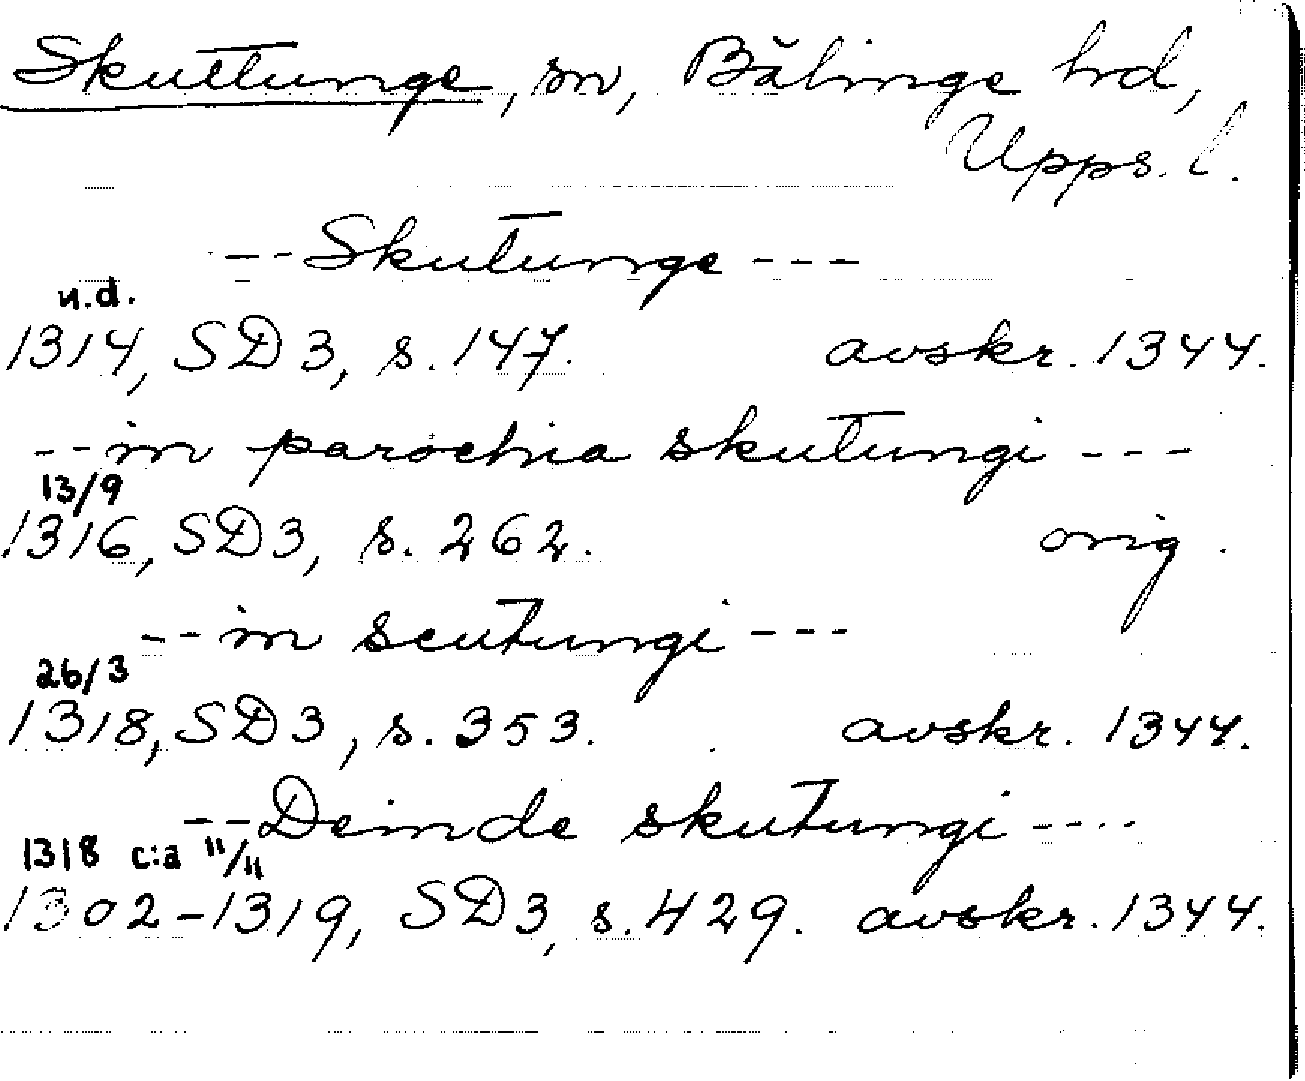 Skuttunge, sn, Bälinge hd,
Upps. l.
-- Skutunge ---
n.d.
1314, SD 3, s. 147. avskr. 1344.
-- in parochia skutungi ---
13/9
1316, SD 3, s. 262. orig.
-- in scutungi ---
26/3
1318, SD 3, s. 353. avskr. 1344.
-- Deinde skutungi ----
1318 c:a 11/11
1302-1319, SD 3, s. 429. avskr. 1344.